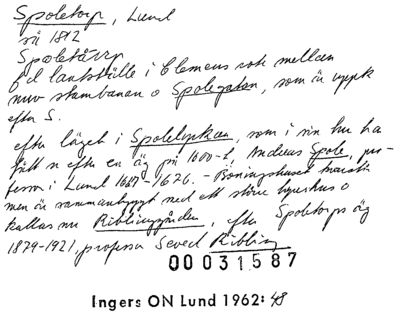 Spoletorp, Lund
sn 1812
Spoletårp
f d lantställe i Clemens rote mellan
nuv stambanan o Spolegatan, som är uppk
efter S.
efter läget i Spolelyckan, som i sin tur ha
fått n efter en äg på 1600-t, Andreas Spole, pro-
fessor i Lund 1667-1676. - Böningshuset kvarstår
men är sammanbyggt med ett större hyreshus o
kallas nu Ribbingska gården, efter Spoletorps äg
1879-1921, professor Seved Ribbing
00 031587
Ingers ON Lund 1962: 48